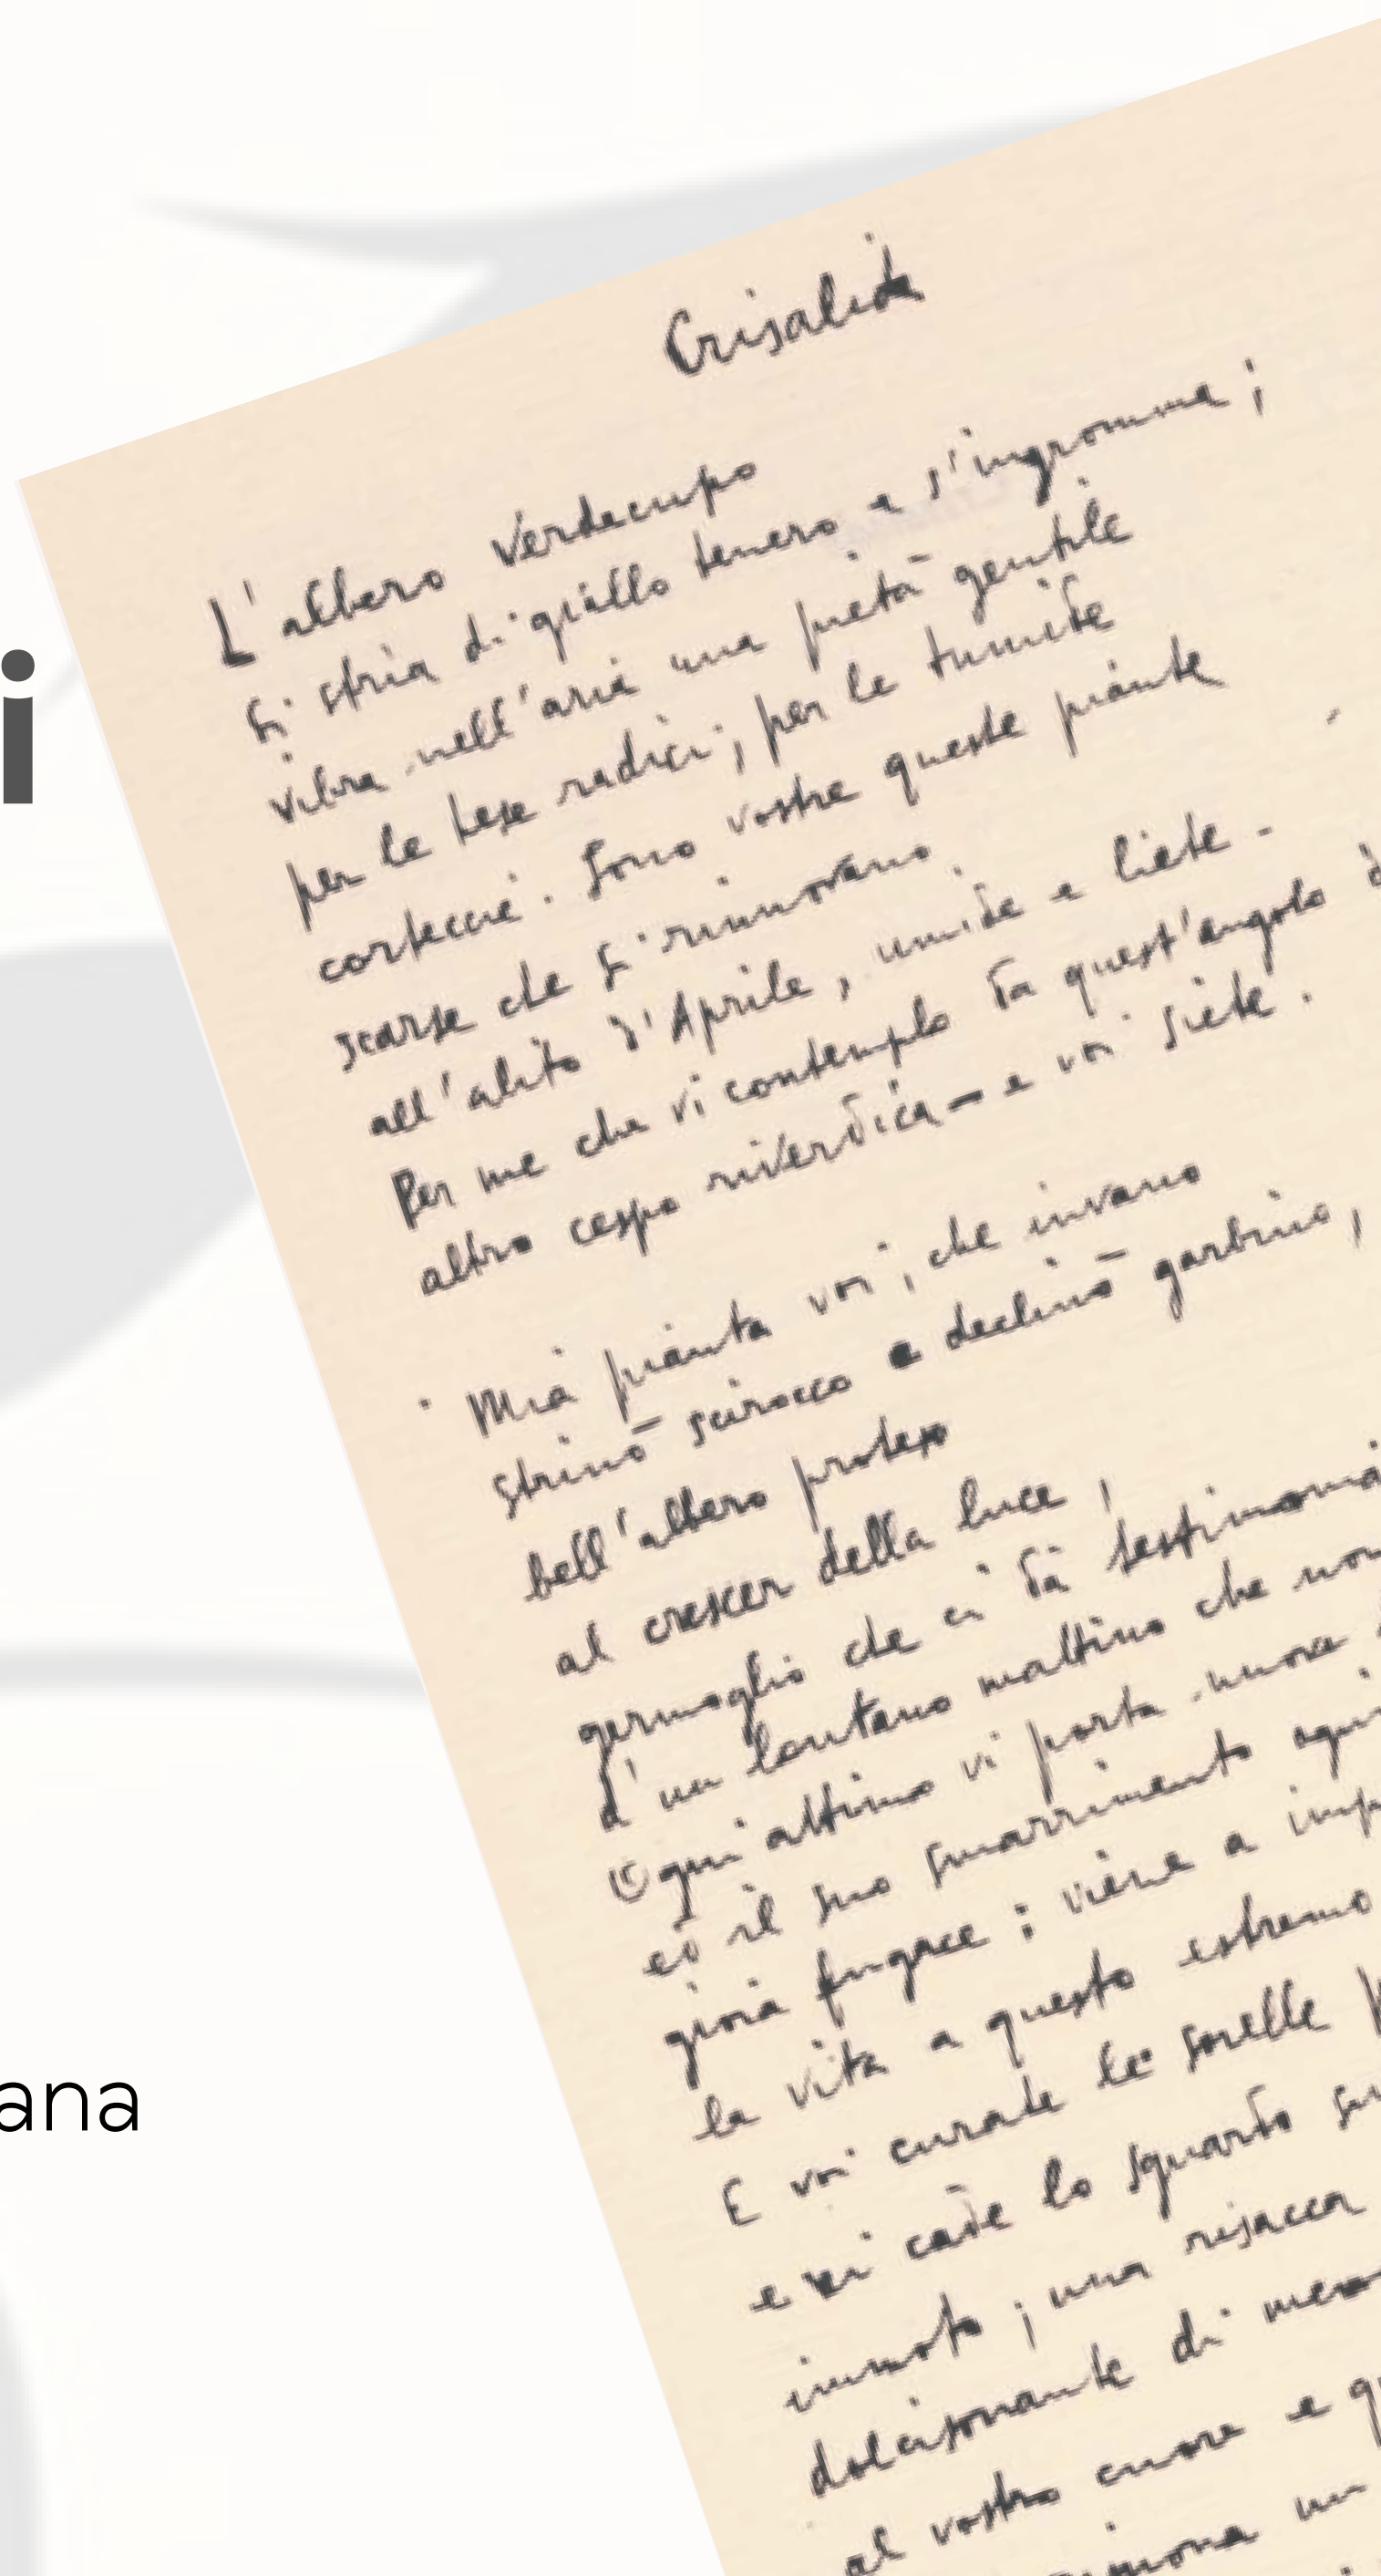 Crisalide
L'albero verdecupo
si stria di giallo tenero e s'ingromma;
vibra nell'aria una pietà gentile
per le tese radici; per le tumide
cortecce. Sono vostre queste piante
scarse che si rinnovano
all'alito d'Aprile, umide e liete.-
Per me che vi contemplo da quest'angolo
altro cespo riverdica – e voi siete.
Mia pianta voi, che invano
strinò scirocco e declinò garbino,
bell'albero proteso
al crescer della luce,
germoglio che ci dà
d'un lontano mattino che non
Ogni attimo vi porta nuove
ed il suo smarrimento
gioia fugace; viene a
la vita a questo estremo
E voi curate le sorelle
e vi cade lo sguardo
immoto; una risacca
al vostro cuore e
un
i
ana